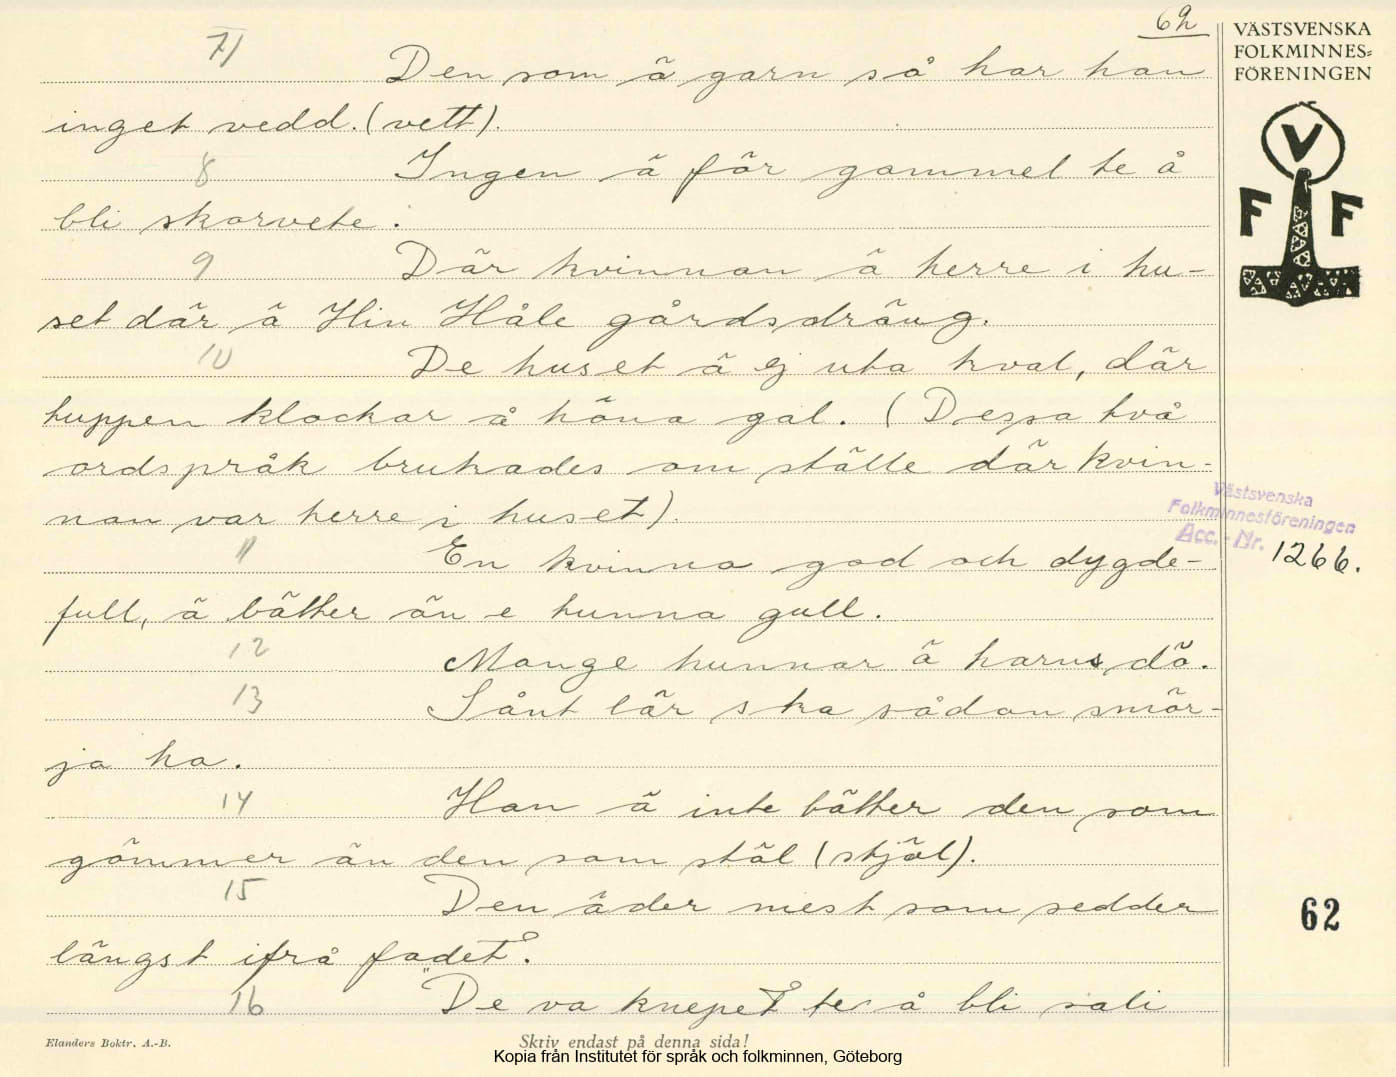 62
VÄSTSVENSKA
FOLKMINNES-
FÖRENINGEN
V
F F
7) Den som ä garn så har han
inget vedd. (vett).
8 Ingen ä för gammel te å
bli skorvete.
9 Där kvinnan ä herre i hu-
set där ä Hin Håle gårdsdräng.
10 De huset ä ej uta kval, där
huppen klockar å höna gal. (Dessa två
ordspråk brukades om ställe där kvin-
nan var herre i huset).
11 En kvinna god och dygde-
full, ä bätter än e hunna gull.
12 Mange hunnar ä haruns dö.
13 Sånt lär ska sådan smör-
ja ha.
14 Han ä inte bätter den som
gömmer än den som stäl (stjäl).
15 Den äder mest som sedder
längst ifrå fadet.
16 "De va knepet te å bli sali
Västsvenska
Folkminnesföreningen
Acc. - Nr. 1266.
62
Elanders Boktr. A.-B.
Skriv endast på denna sida!
Kopia från Institutet för språk och folkminnen, Göteborg